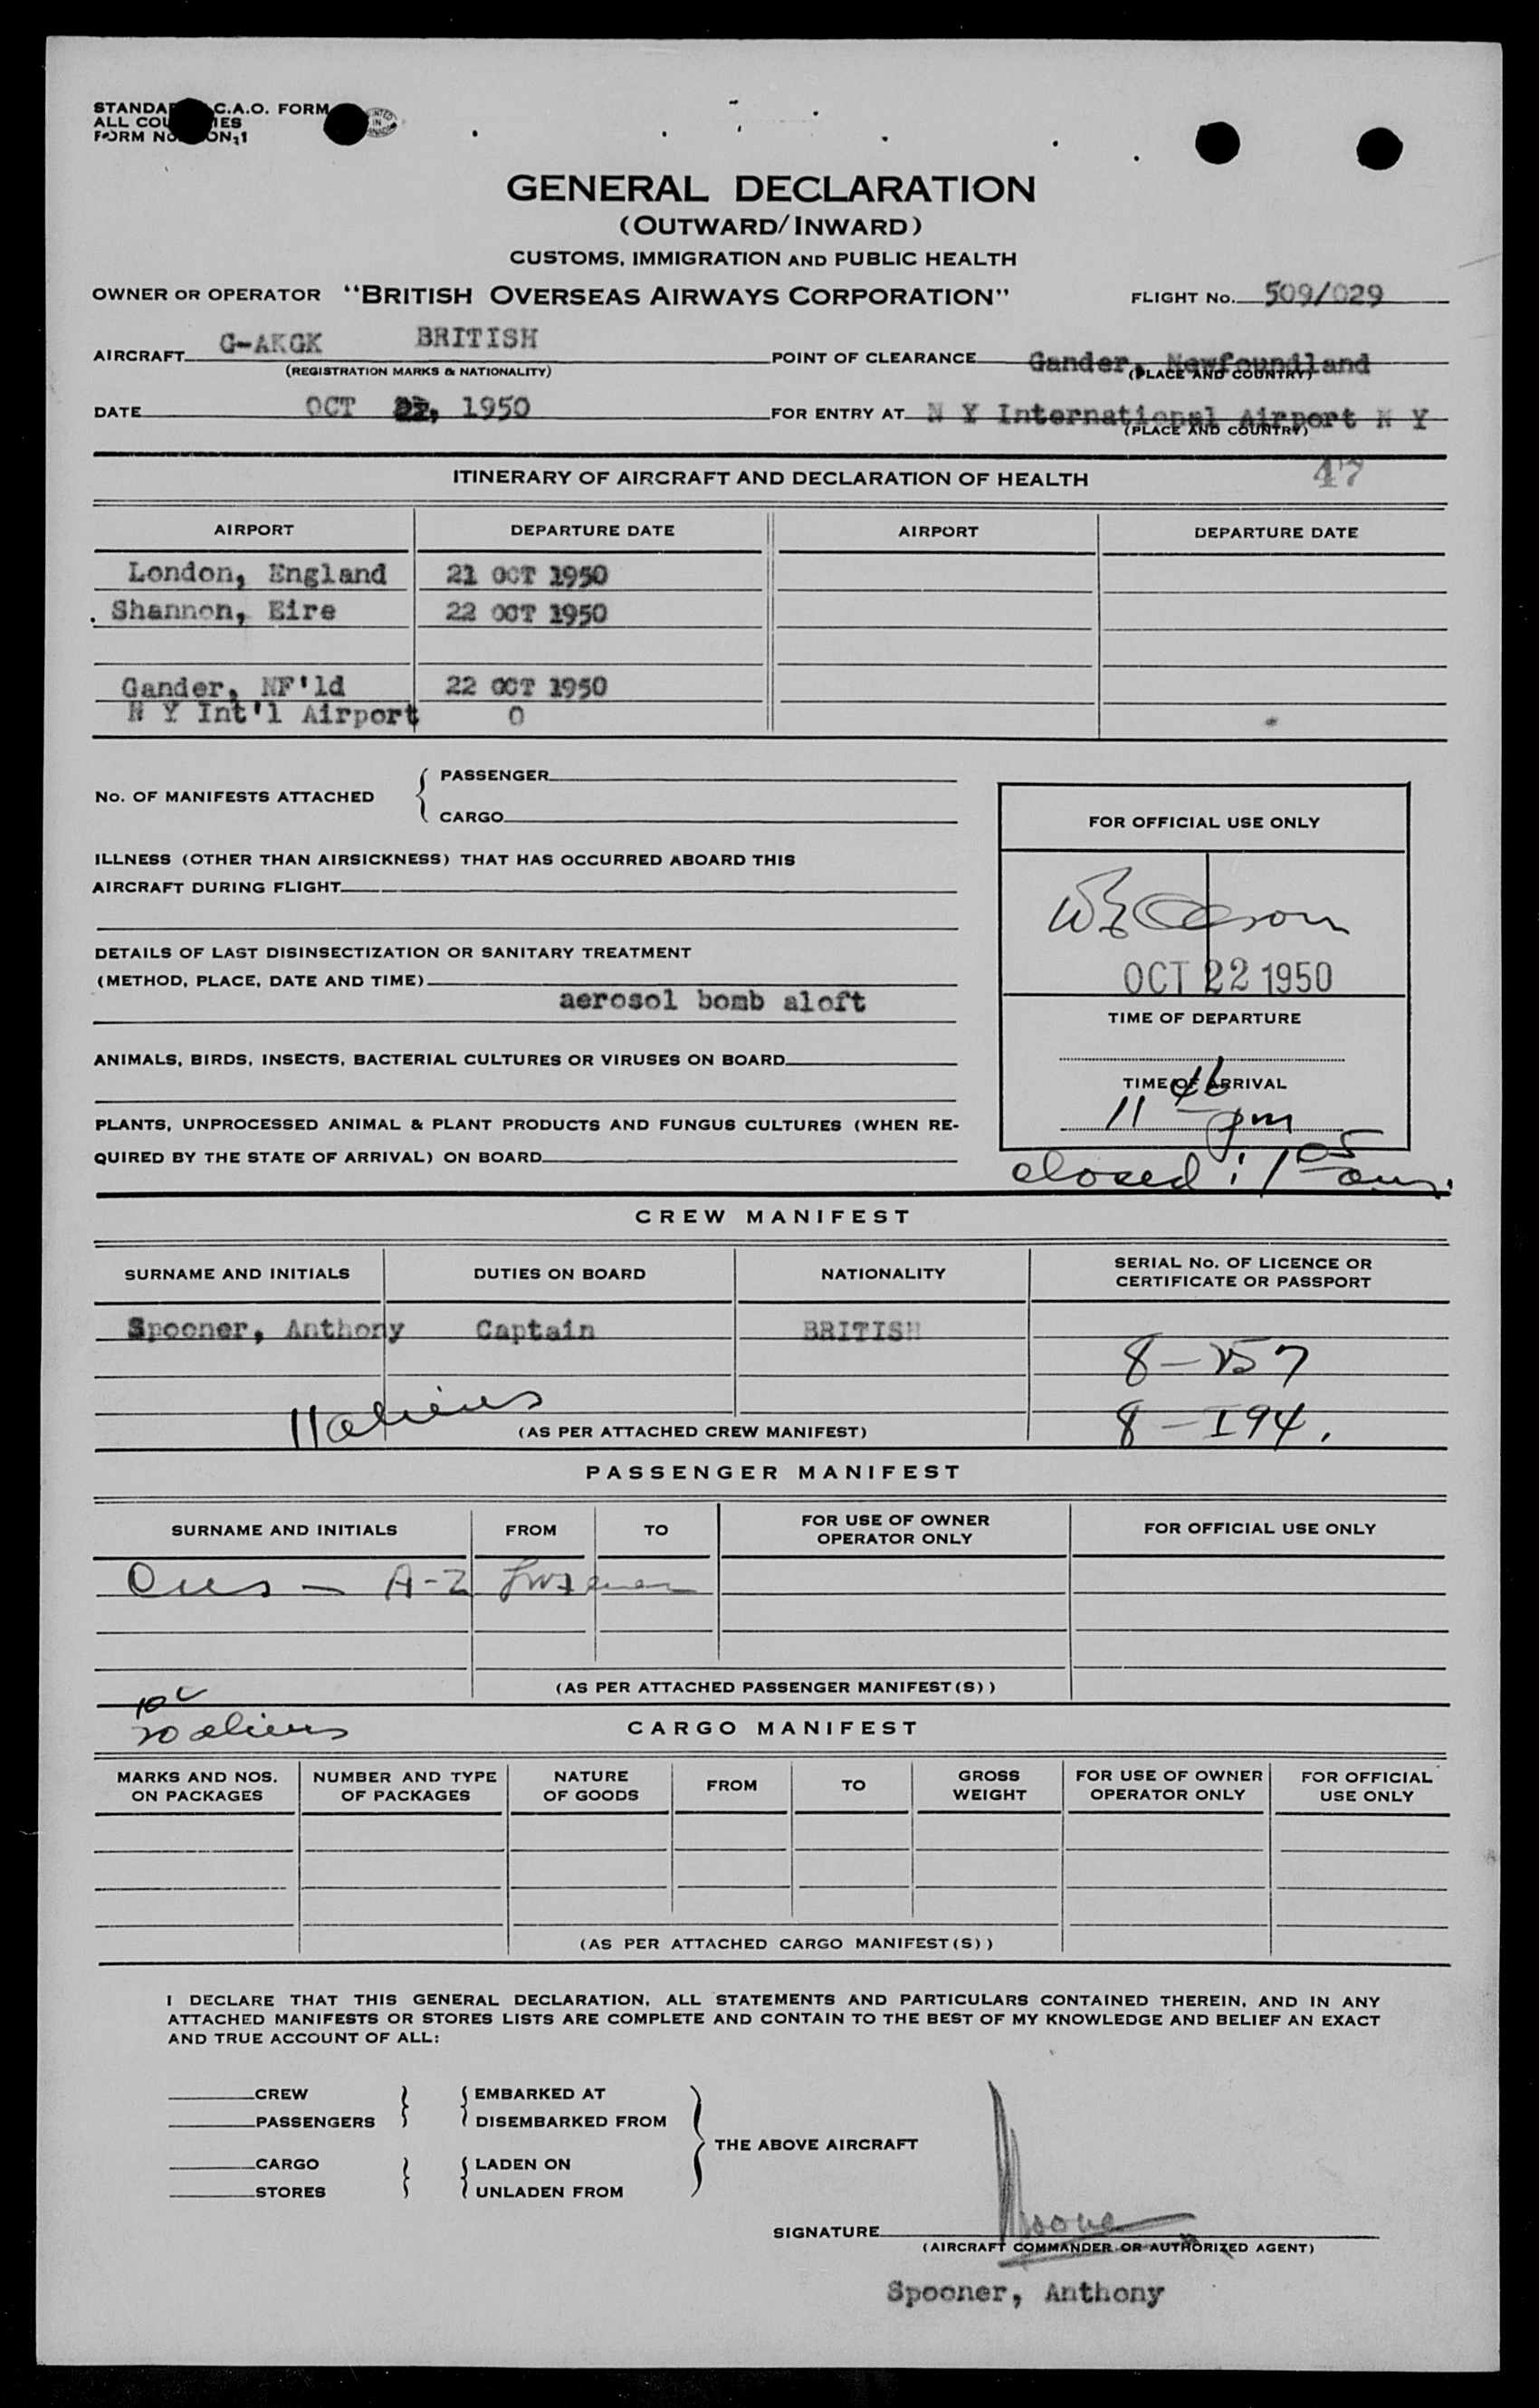 STANDA C.A.O. FORM
ALL COU IES
FORM NO. ON-1
GENERAL DECLARATION
(OUTWARD/INWARD)
CUSTOMS, IMMIGRATION AND PUBLIC HEALTH
OWNER OR OPERATOR "BRITISH OVERSEAS AIRWAYS CORPORATION" FLIGHT No. 509/029
AIRCRAFT G-AKGK BRITISH POINT OF CLEARANCE Gander, Newfoundland
(REGISTRATION MARKS & NATIONALITY) (PLACE AND COUNTRY)
DATE OCT 1950 FOR ENTRY AT N Y International Airport N Y
(PLACE AND COUNTRY)
ITINERARY OF AIRCRAFT AND DECLARATION OF HEALTH 47
AIRPORT DEPARTURE DATE AIRPORT DEPARTURE DATE
London, England 21 OCT 1950
Shannon, Eire 22 OCT 1950
Gander, NF'ld 22 OCT 1950
N Y Int'l Airport 0
No. OF MANIFESTS ATTACHED { PASSENGER
CARGO
ILLNESS (OTHER THAN AIRSICKNESS) THAT HAS OCCURRED ABOARD THIS
AIRCRAFT DURING FLIGHT
DETAILS OF LAST DISINSECTIZATION OR SANITARY TREATMENT
(METHOD, PLACE, DATE AND TIME)
aerosol bomb aloft
ANIMALS, BIRDS, INSECTS, BACTERIAL CULTURES OR VIRUSES ON BOARD
PLANTS, UNPROCESSED ANIMAL & PLANT PRODUCTS AND FUNGUS CULTURES (WHEN RE-
QUIRED BY THE STATE OF ARRIVAL) ON BOARD
FOR OFFICIAL USE ONLY
OCT 22 1950
TIME OF DEPARTURE
TIME OF ARRIVAL
11 46 pm
closed: 1 05 am.
CREW MANIFEST
SURNAME AND INITIALS DUTIES ON BOARD NATIONALITY SERIAL No. OF LICENCE OR
CERTIFICATE OR PASSPORT
Spooner, Anthony Captain BRITISH
8-257
11 aliens
8-I94.
(AS PER ATTACHED CREW MANIFEST)
PASSENGER MANIFEST
SURNAME AND INITIALS FROM TO FOR USE OF OWNER
OPERATOR ONLY FOR OFFICIAL USE ONLY
A-2
(AS PER ATTACHED PASSENGER MANIFEST(S))
10 c
20 aliens
CARGO MANIFEST
MARKS AND NOS.
ON PACKAGES NUMBER AND TYPE
OF PACKAGES NATURE
OF GOODS FROM TO GROSS
WEIGHT FOR USE OF OWNER
OPERATOR ONLY FOR OFFICIAL
USE ONLY
(AS PER ATTACHED CARGO MANIFEST(S))
I DECLARE THAT THIS GENERAL DECLARATION, ALL STATEMENTS AND PARTICULARS CONTAINED THEREIN, AND IN ANY
ATTACHED MANIFESTS OR STORES LISTS ARE COMPLETE AND CONTAIN TO THE BEST OF MY KNOWLEDGE AND BELIEF AN EXACT
AND TRUE ACCOUNT OF ALL:
CREW } { EMBARKED AT
PASSENGERS DISEMBARKED FROM
} THE ABOVE AIRCRAFT
CARGO } { LADEN ON
STORES UNLADEN FROM
SIGNATURE Spooner
(AIRCRAFT COMMANDER OR AUTHORIZED AGENT)
Spooner, Anthony